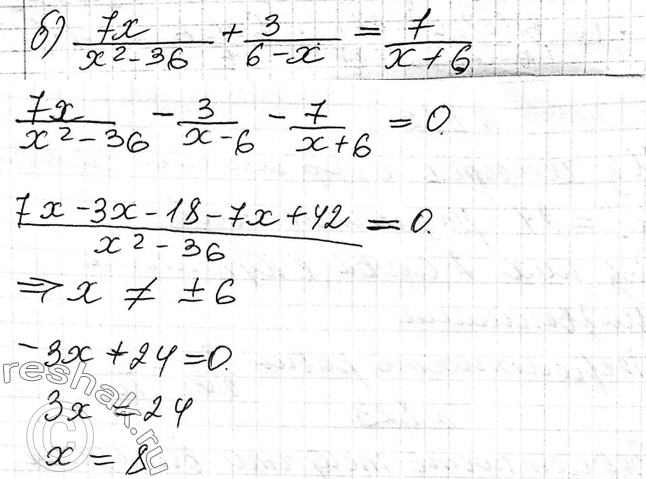 б) 7x/(x² - 36) + 3/(6 - x) = 7/(x + 6)
7x/(x² - 36) - 3/(x - 6) - 7/(x + 6) = 0.
(7x - 3x - 18 - 7x + 42)/(x² - 36) = 0.
⇒ x ≠ ± 6
-3x + 24 = 0.
3x = 24
x = 8
reshak.ru